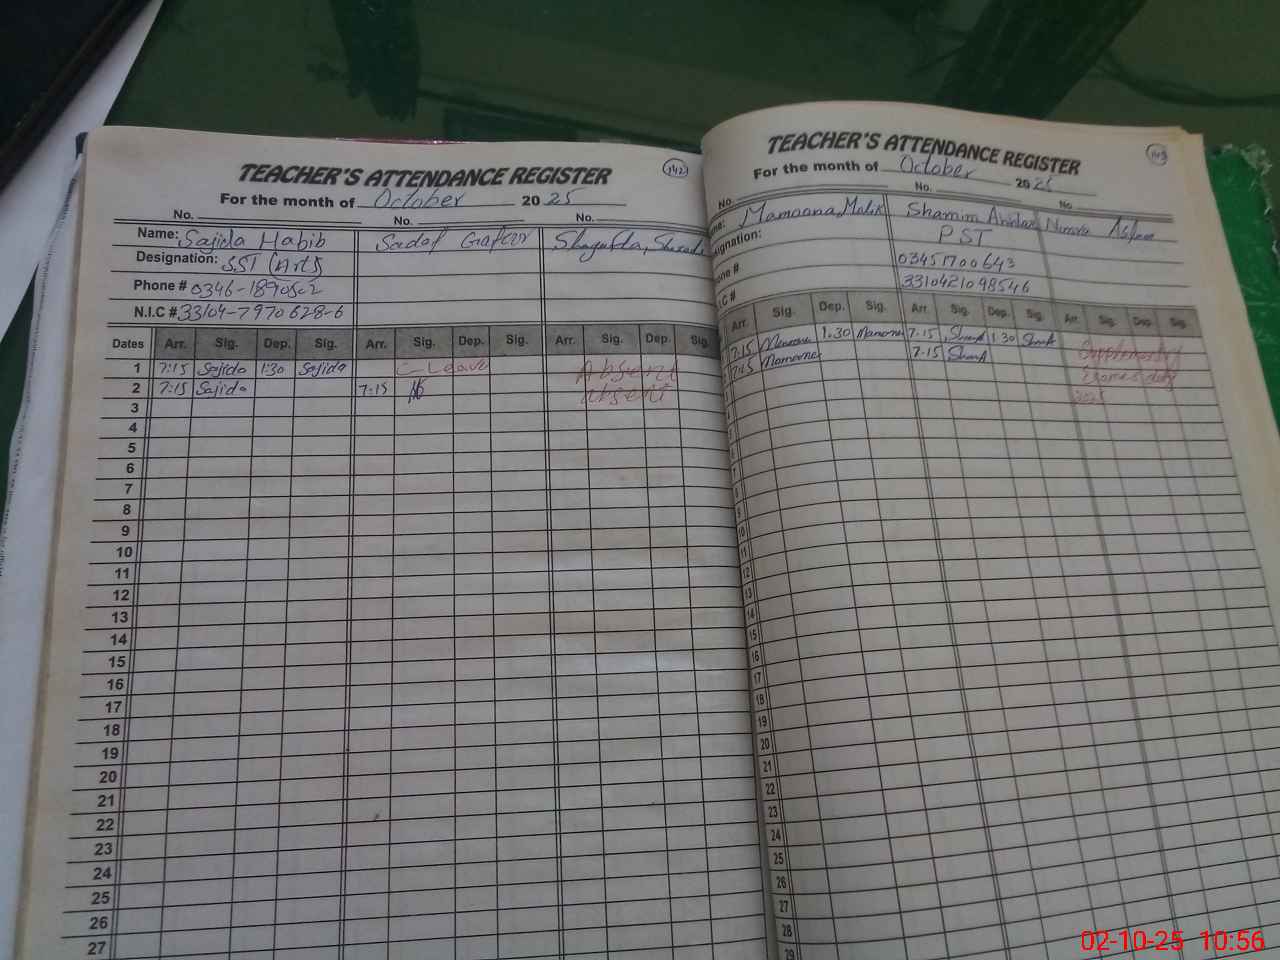 TEACHER'S ATTENDANCE REGISTER
142
For the month of October 2025
No. No. No.
Name: Sajida Habib Sadaf Gafur Shagufta
Designation: SST (Arts)
Phone # 0346-1890502
N.I.C # 33104-7970628-6
Dates Arr. Sig. Dep. Sig. Arr. Sig. Dep. Sig. Arr. Sig. Dep. Sig.
1 7:15 Sajida 1:30 Sajida C-Leave Absent
2 7:15 Sajida 7:15 Absent
3
4
5
6
7
8
9
10
11
12
13
14
15
16
17
18
19
20
21
22
23
24
25
26
27
TEACHER'S ATTENDANCE REGISTER
143
For the month of October 2025
No. No. No.
me: Mamoona Malik Shamim
signation: PST
one # 03451700643
I.C # 3310421098546
Arr. Sig. Dep. Sig. Arr. Sig. Dep. Sig. Arr. Sig. Dep. Sig.
7:15 1.30 7-15 1:30
7:15 7-15
2025
7
8
9
10
11
12
13
14
15
16
17
18
19
20
21
22
23
24
25
26
27
28
29
02-10-25 10:56